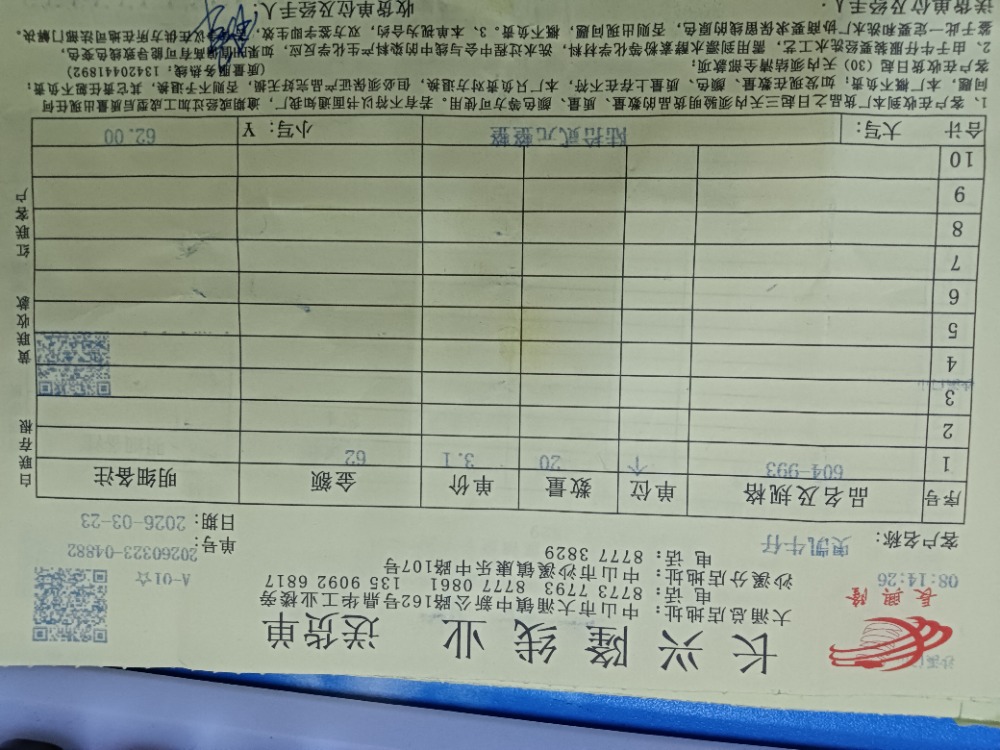 长兴隆线业 送货单
長興隆
大涌总店地址：中山市大涌镇中新公路162号鼎华工业楼旁
电话：8773 7793 8777 0861 135 9092 6817
沙溪分店地址：中山市沙溪镇康乐中路107号
电话：8777 3829
08:14:26
A-01☆
客户名称：奥凯牛仔
单号：20260323-04882
日期：2026-03-23
序号 品名及规格 单位 数量 单价 金额 明细备注
1 604-993 个 20 3.1 62
2
3
4
5
6
7
8
9
10
合计 大写：陆拾贰元整整 小写：￥ 62.00
白联存根 黄联收款 红联客户
1、客户在收到本厂货品之日起三天内须验明货品的数量、质量、颜色等方可使用。若有不符以书面通知我厂，逾期或经过加工成型后质量出现任何
问题，本厂概不负责；如发现在数量、颜色、质量上存在不符，本厂只负责对方退换，但必须保证产品完好无损，否则不予退换，其它责任恕不负责；
客户在收货日起（30）天内须结清全部款项； （质量服务热线：13420441892）
2、由于牛仔服装要经洗水工艺，需用到漂水酵素粉等化学材料，洗水过程中会与线中的染料产生化学反应，如果
鉴于此一定要和洗水厂协商要求保留线的原色，否则出现问题，概不负责。3、本单视为合约，双方签字即生效，
在供方所在地司法部门解决。
送货单位及经手人：
收货单位及经手人：